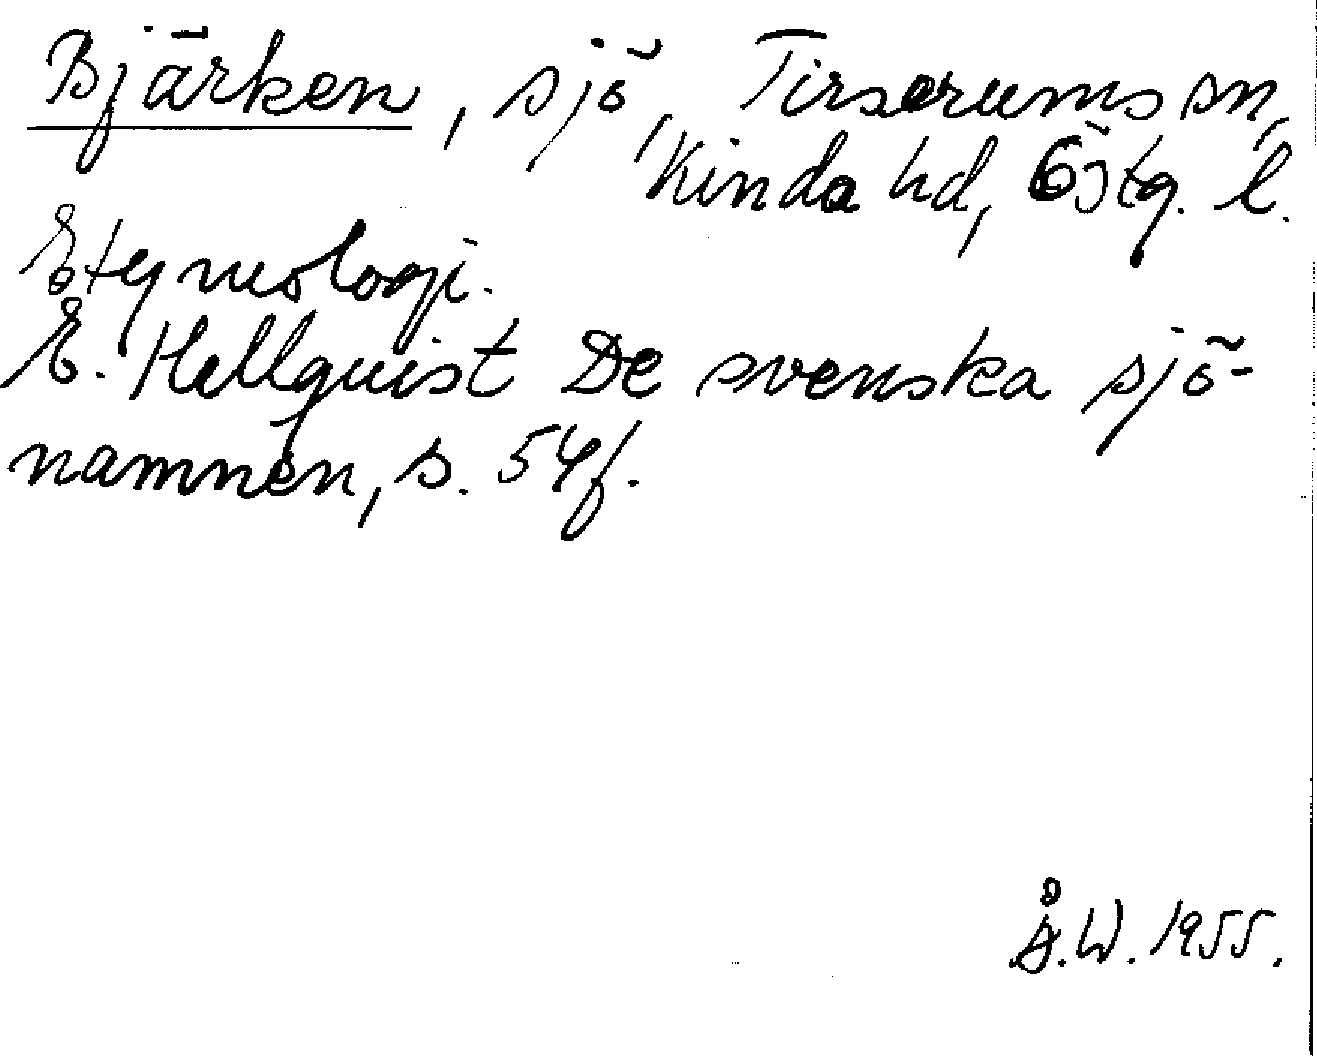 Bjärken, sjö, Tirserums sn,
Kinda hd, Östg. l.
Etymologi.
E. Hellquist De svenska sjö-
namnen, s. 54f.
Å.W. 1955.